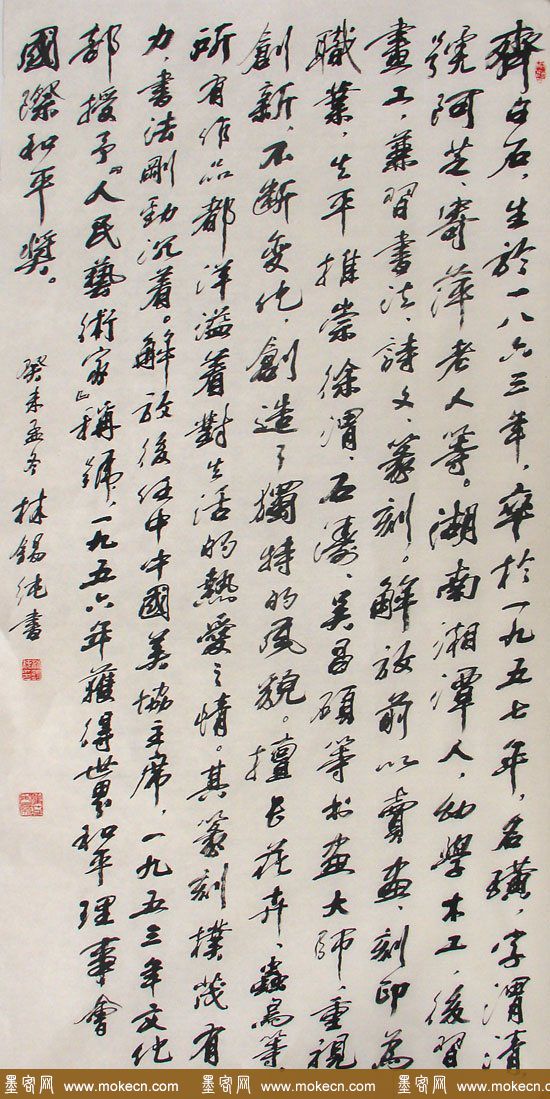 齊白石，生於一八六三年，卒於一九五七年，名璜，字渭清，
號阿芝、寄萍老人等。湖南湘潭人，幼學木工，後習
畫工，兼習書法、詩文、篆刻。解放前以賣畫、刻印為
職業，生平推崇徐渭、石濤、吴昌碩等書畫大師，重視
創新，不斷变化，創造了獨特的风貌。擅长花卉、蟲鳥等，
所有作品都洋溢着對生活的熱愛之情。其篆刻樸茂有
力，書法剛勁沉着。解放後任中中國美協主席，一九五三年文化
部授予『人民藝術家』稱號，一九五六年獲得世界和平理事會
國際和平奬。
癸未孟冬 林锡纯書
墨客网 www.mokecn.com 墨客网 www.mokecn.com 墨客网 www.mokecn.com